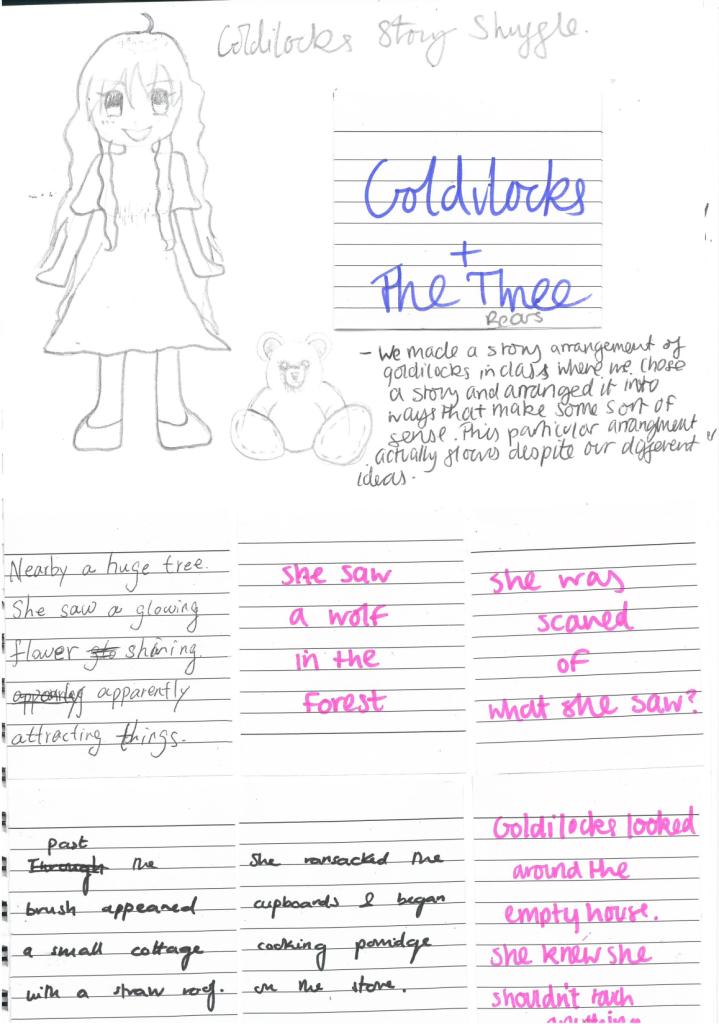 Goldilocks Story Shuffle.
Goldilocks
+
The Three
Bears
- We made a story arrangement of
goldilocks in class where we chose
a story and arranged it into
ways that make some sort of
sense. This particular arrangment
actually flows despite our different
ideas.
Nearby a huge tree.
She saw a glowing
flower shining.
apparently
attracting things.
she saw
a wolf
in the
forest
she was
scared
of
what she saw?
past
Through the
brush appeared
a small cottage
with a straw roof.
She ransacked the
cupboards & began
cooking porridge
on the stove.
Goldilocks looked
around the
empty house.
she knew she
shouldn't touch
anything